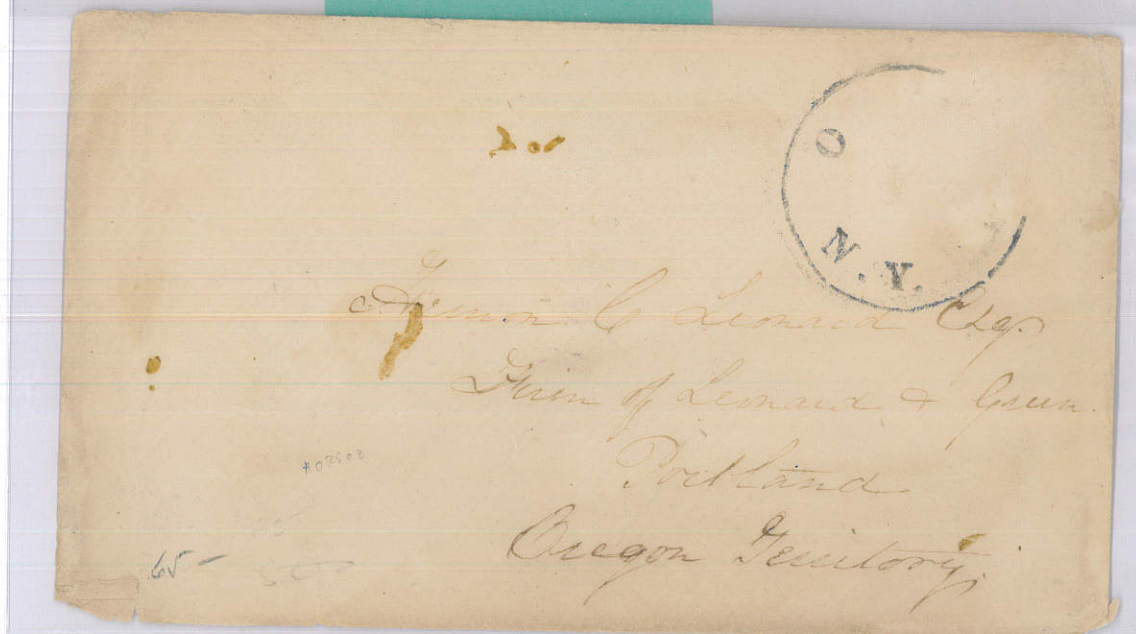 O
N.Y.
C. Leonard Esq.
Firm of Leonard & Green.
Portland
Oregon Territory.
65 -